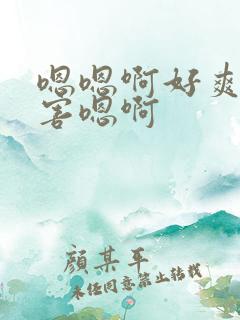 嗯嗯啊好爽
害嗯啊
顏某平
未经同意禁止转载